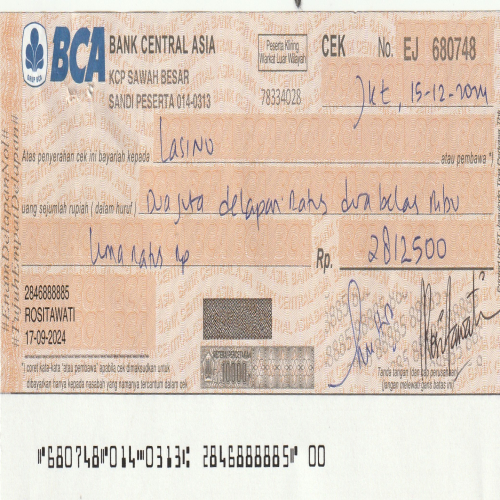 BCA BANK CENTRAL ASIA
KCP SAWAH BESAR
SANDI PESERTA 014-0313
Peserta Kliring
Warkat Luar Wilayah
78334028
CEK No. EJ 680748
Jkt, 15-12-2024
Atas penyerahan cek ini bayarlah kepada Lasino atau pembawa *)
uang sejumlah rupiah ( dalam huruf ) Dua juta delapan ratus dua belas ribu
lima ratus rp Rp. 2812500
2846888885
ROSITAWATI
17-09-2024
*) coret kata-kata "atau pembawa", apabila cek dimaksudkan untuk
dibayarkan hanya kepada nasabah yang namanya tercantum dalam cek
Tanda tangan (dan cap perusahaan)
(jangan melewati garis batas ini)
#Enam Delapan Nol#
#Tujuh Empat Delapan#
680748 014 0313 2846888885 00